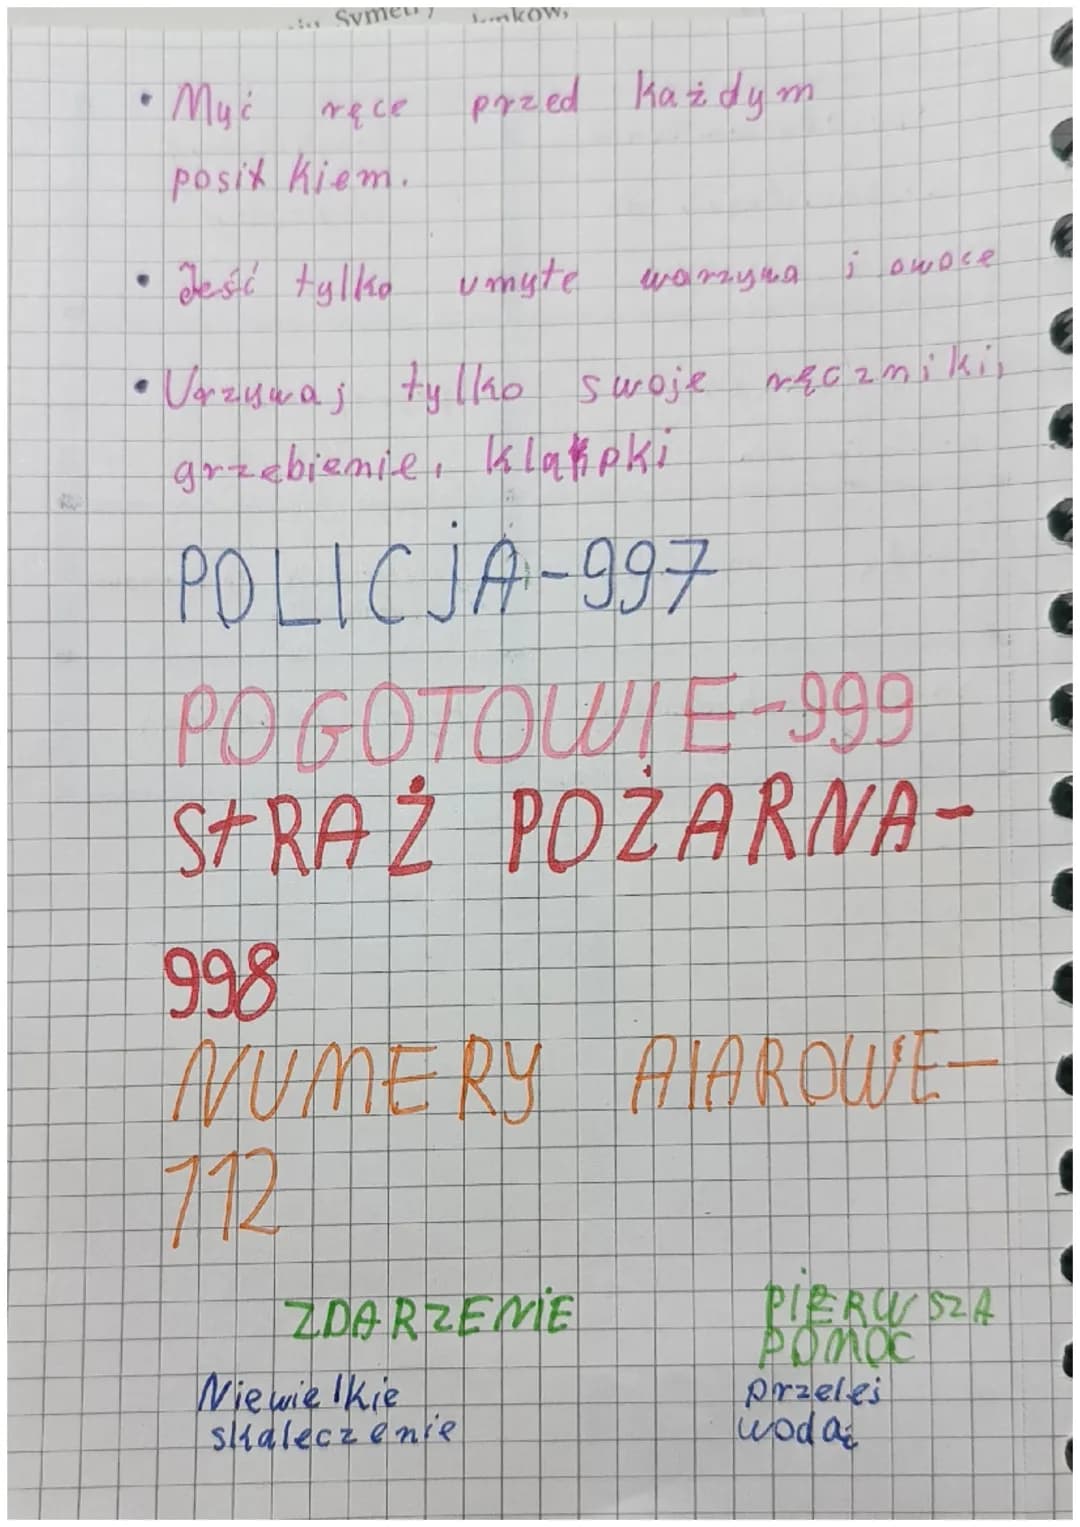 • Myć ręce przed każdym
posiłkiem.
• Jeść tylko umyte warzywa i owoce
• Urzywaj tylko swoje ręczniki,
grzebienie, klapki
POLICJA-997
POGOTOWIE-999
STRAŻ POŻARNA-
998
NUMERY ALAROWE-
112
ZDARZENIE PIERWSZA
POMOC
Niewielkie
skaleczenie
przelej
wodą